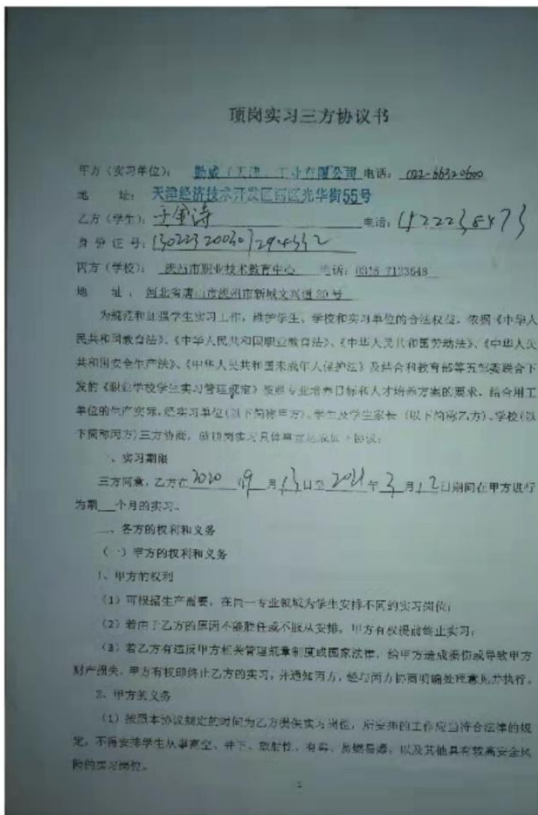 顶岗实习三方协议书
甲方（实习单位）： （天津）工业有限公司 电话： 022-66320600
地 址： 天津经济技术开发区西区光华街55号
乙方（学生）： 电话：
身份证号：
丙方（学校）： 滦州市职业技术教育中心 电话：0315 7123648
地 址： 河北省唐山市滦州市新城文兴道20号
为规范和加强学生实习工作，维护学生、学校和实习单位的合法权益，依据《中华人
民共和国教育法》、《中华人民共和国职业教育法》、《中华人民共和国劳动法》、《中华人民
共和国安全生产法》、《中华人民共和国未成年人保护法》及结合和教育部等五部委联合下
发的《职业学校学生实习管理规定》按照专业培养目标和人才培养方案的要求，结合用工
单位的生产实际，经实习单位（以下简称甲方）、学生及学生家长（以下简称乙方）、学校（以
下简称丙方）三方协商，就顶岗实习具体事宜达成以下协议：
一、实习期限
三方同意，乙方在2020年9月13日至2021年3月12日期间在甲方进行
为期 个月的实习。
二、各方的权利和义务
（一）甲方的权利和义务
1、甲方的权利
（1）可根据生产需要，在同一专业领域为学生安排不同的实习岗位；
（2）若由于乙方的原因不能胜任或不服从安排，甲方有权提前终止实习；
（3）若乙方有违反甲方相关管理规章制度或国家法律，给甲方造成损伤或导致甲方
财产损失，甲方有权即终止乙方的实习，并通知丙方，经与丙方协商明确处理意见并执行。
2、甲方的义务
（1）按照本协议规定的时间为乙方提供实习岗位，所安排的工作应当符合法律的规
定，不得安排学生从事高空、井下、放射性、有毒、易燃易爆，以及其他具有较高安全风
险的实习岗位。
1